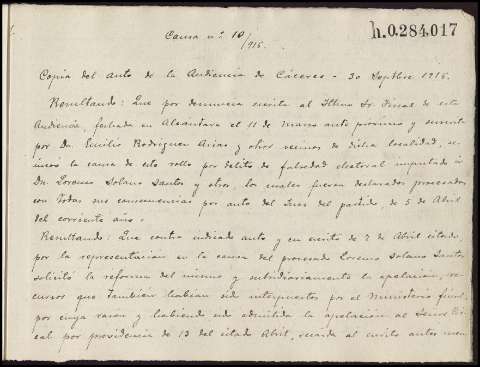 Causa nº 10/915.
h.0.284.017
Copia del auto de la Audiencia de Cáceres - 30 Septbre 1915.
Resultando: Que por denuncia escrita al Iltmo Sr. Fiscal de esta
Audiencia, fechada en Alcántara el 11 de Marzo ante próximo y suscrita
por Dn. Emilio Rodríguez Arias y otros vecinos de dicha localidad, se
inició la causa de este rollo por delito de falsedad electoral imputado a
Dn. Lorenzo Solano Santos y otros, los cuales fueron declarados procesados
con todas sus consecuencias por auto del Juez del partido, de 5 de Abril
del corriente año.
Resultando: Que contra indicado auto y en escrito de 7 de Abril citado,
por la representación en la causa del procesado Lorenzo Solano Santos
solicitó la reforma del mismo y subsidiariamente la apelación, re-
cursos que también habían sido interpuestos por el Ministerio fiscal,
por cuya razón y habiendo sido admitida la apelación al Señor Fis-
cal por providencia de 13 del citado Abril, recaída al escrito antes men